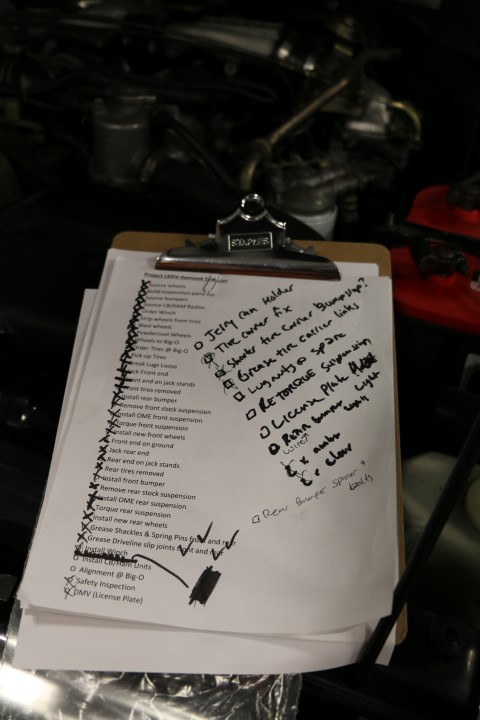 STAPLES
Project LRRTV
Source wheels
Build suspension parts list
Source bumpers
Source CB/HAM Radios
Order Winch
Strip wheels from tires
Blast wheels
Powdercoat Wheels
Wheels to Big-O
Order Tires @ Big-O
Pick-up Tires
Break Lugs Loose
Jack Front end
Front end on jack stands
Front tires removed
Install rear bumper
Remove front stock suspension
Install OME front suspension
Torque front suspension
Install new front wheels
Front end on ground
Jack rear end
Rear end on jack stands
Rear tires removed
Install front bumper
Remove rear stock suspension
Install OME rear suspension
Torque rear suspension
Install new rear wheels
Grease Shackles & Spring Pins front and rear
Grease Driveline slip joints front and rear
Install Winch
Install CB/Ham Units
Alignment @ Big-O
Safety Inspection
DMV (License Plate)
Jerry can Holder
Tire carrier fix
Shorter tire carrier bump stop?
Grease tire carrier links
Lug nuts @ spare
RETORQUE suspension
License plate
Rear bumper light
wires
Rear Bumper Spacer &
bolts